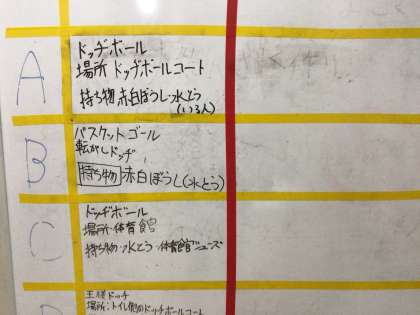 A
ドッヂボール
場所 ドッヂボールコート
持ち物 赤白ぼうし・水とう
(いる人)
B
バスケットゴール
転がしドッヂ
持ち物 赤白ぼうし(水とう)
C
ドッヂボール
場所・体育館
持ち物・水とう・体育館シューズ
王様ドッヂ
場所:トイレ側のドッヂボールコート